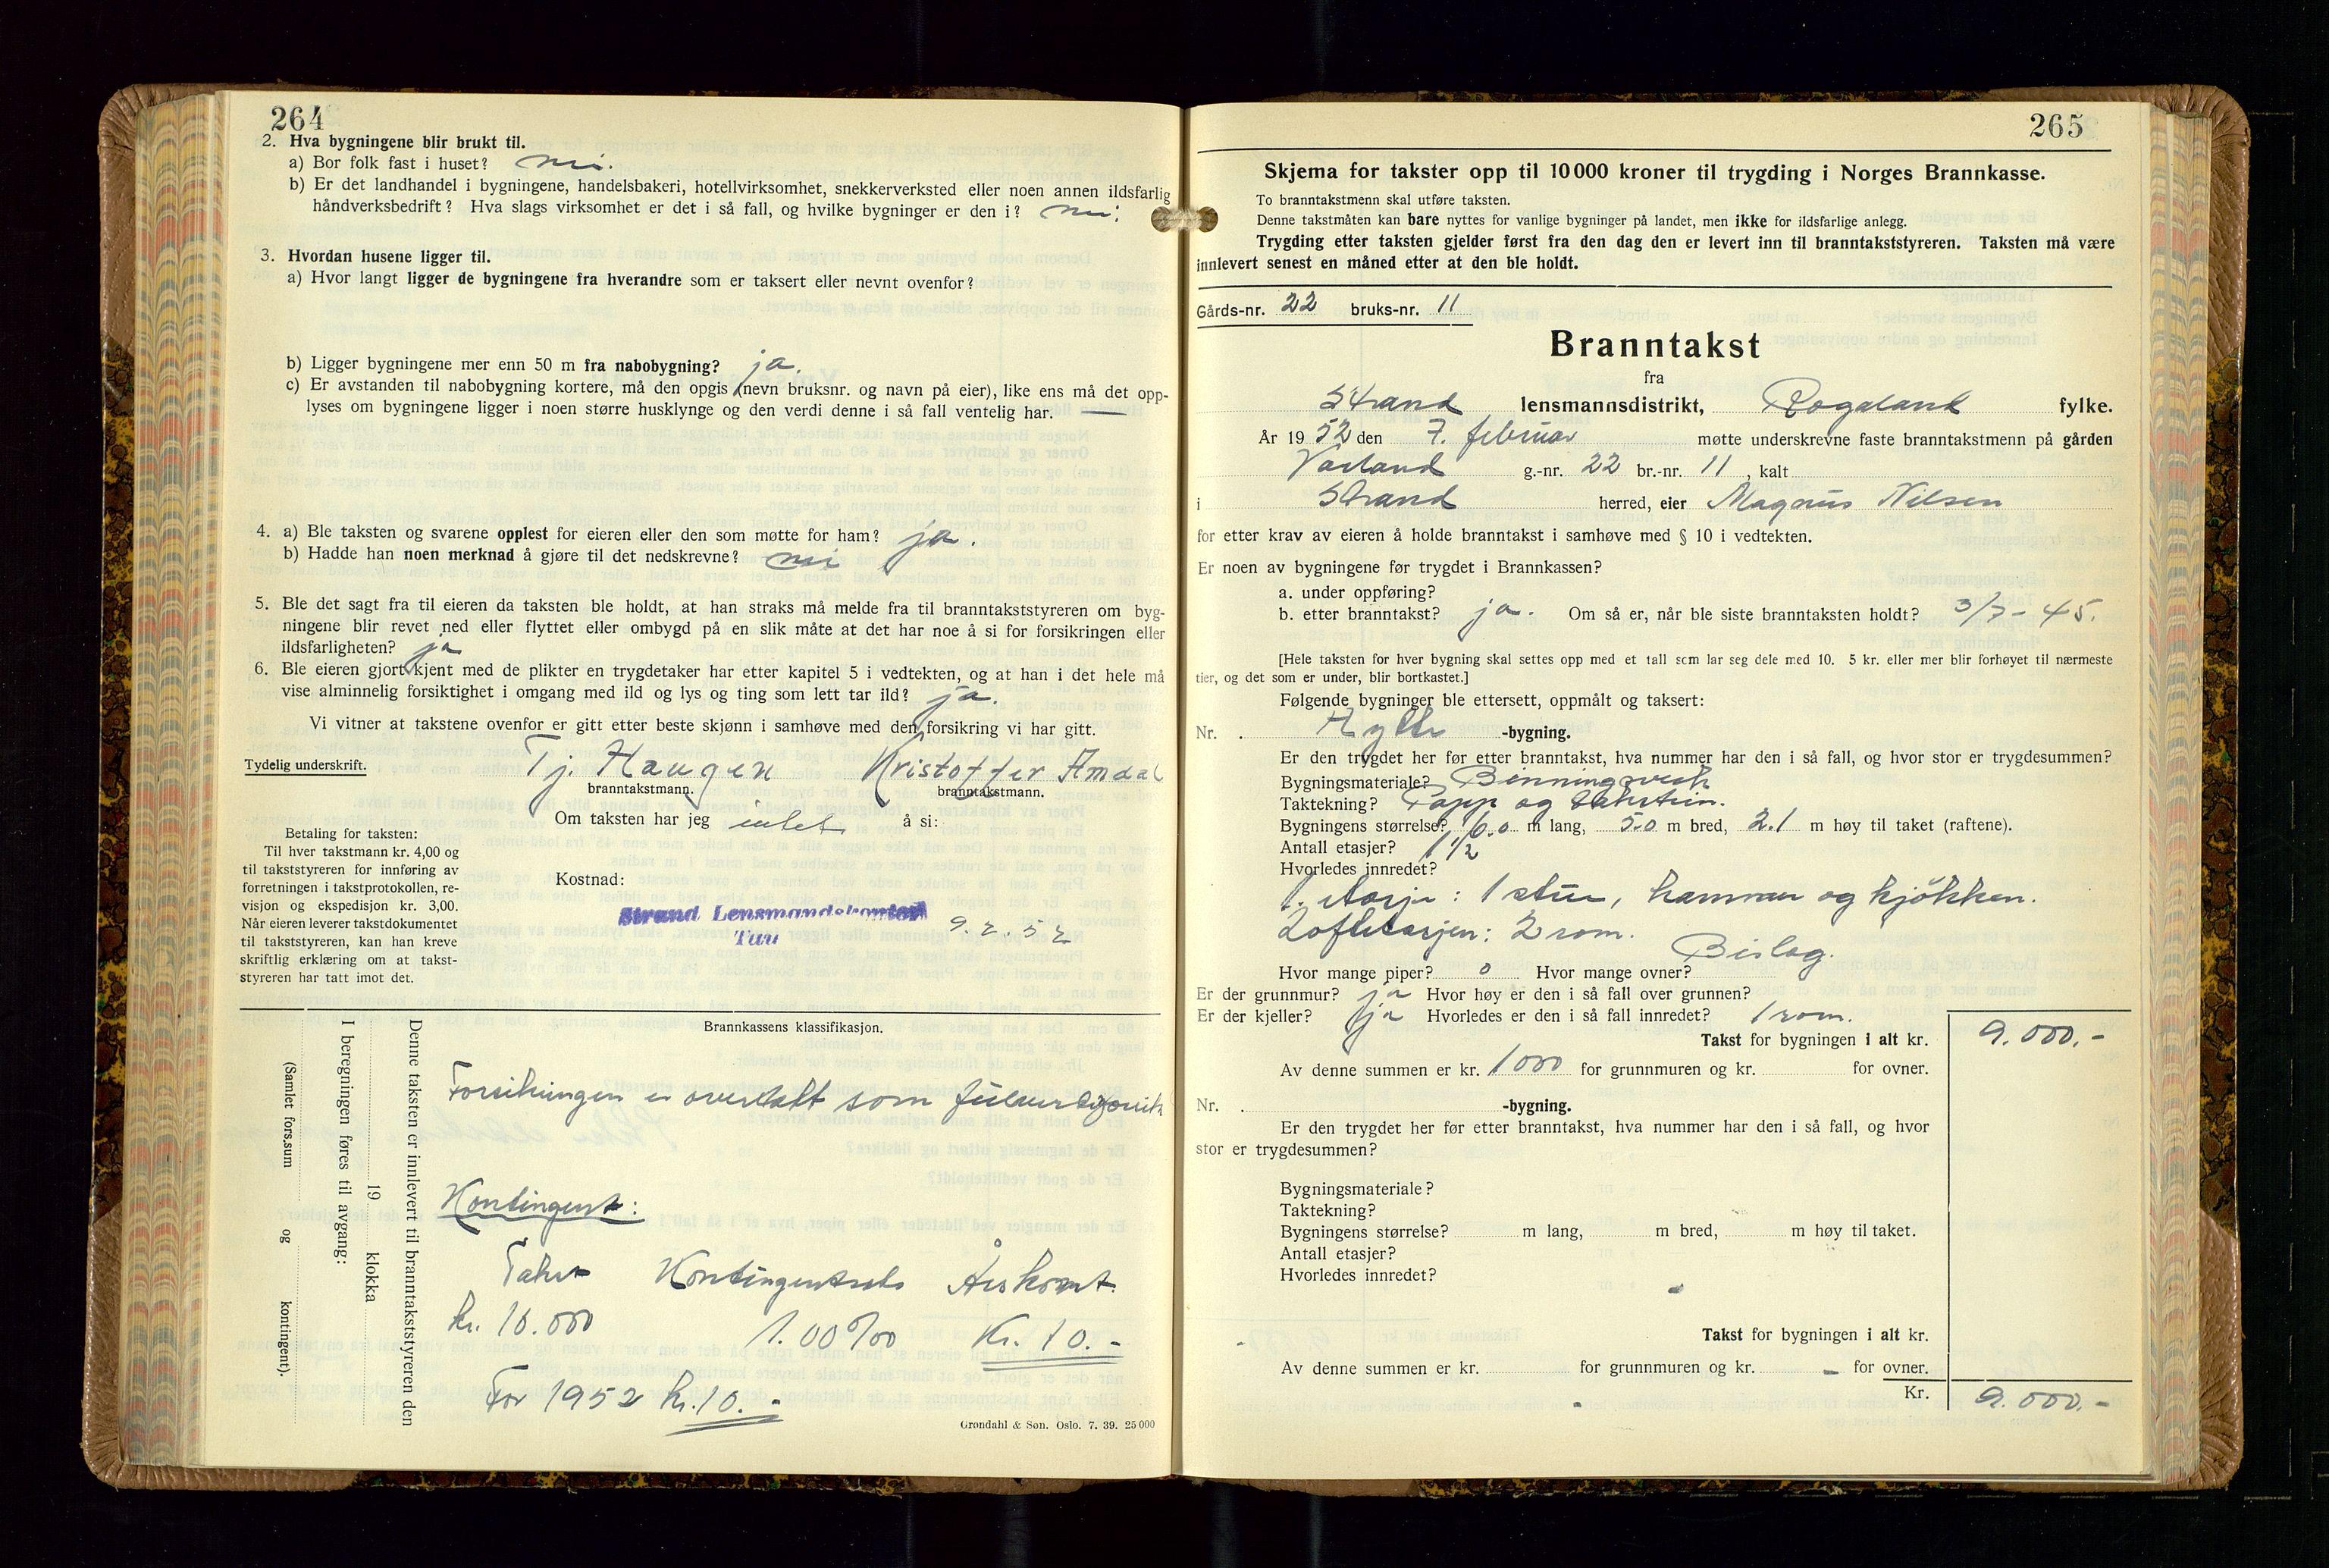 264
2. Hva bygningene blir brukt til.
a) Bor folk fast i huset? nei.
b) Er det landhandel i bygningene, handelsbakeri, hotellvirksomhet, snekkerverksted eller noen annen ildsfarlig
håndverksbedrift? Hva slags virksomhet er det i så fall, og hvilke bygninger er den i? nei.
3. Hvordan husene ligger til.
a) Hvor langt ligger de bygningene fra hverandre som er taksert eller nevnt ovenfor?
b) Ligger bygningene mer enn 50 m fra nabobygning? ja.
c) Er avstanden til nabobygning kortere, må den opgis (nevn bruksnr. og navn på eier), like ens må det opp-
lyses om bygningene ligger i noen større husklynge og den verdi denne i så fall ventelig har. —
4. a) Ble taksten og svarene opplest for eieren eller den som møtte for ham? ja.
b) Hadde han noen merknad å gjøre til det nedskrevne? nei
5. Ble det sagt fra til eieren da taksten ble holdt, at han straks må melde fra til branntakststyreren om byg-
ningene blir revet ned eller flyttet eller ombygd på en slik måte at det har noe å si for forsikringen eller
ildsfarligheten? ja
6. Ble eieren gjort kjent med de plikter en trygdetaker har etter kapitel 5 i vedtekten, og at han i det hele må
vise alminnelig forsiktighet i omgang med ild og lys og ting som lett tar ild? ja.
Vi vitner at takstene ovenfor er gitt etter beste skjønn i samhøve med den forsikring vi har gitt.
Tydelig underskrift. Tj. Haugen Kristoffer Amdal
branntakstmann. branntakstmann.
Om taksten har jeg intet å si:
Betaling for taksten:
Til hver takstmann kr. 4,00 og
til takststyreren for innføring av
forretningen i takstprotokollen, re-
visjon og ekspedisjon kr. 3,00.
Når eieren leverer takstdokumentet
til takststyreren, kan han kreve
skriftlig erklæring om at takst-
styreren har tatt imot det.
Kostnad:
Strand Lensmandskontor
Tau
9.2.52
Brannkassens klassifikasjon.
Denne taksten er innlevert til branntakststyreren den
19 klokka
I beregningen føres til avgang:
(Samlet fors.sum og kontingent).
Forsikringen er overtatt som
Kontingent:
Takst Kontingentsats Årskont.
kr. 10.000 1.00 ‰ Kr. 10.-
For 1952 kr. 10.-
Grøndahl & Søn. Oslo. 7. 39. 25 000
265
Skjema for takster opp til 10 000 kroner til trygding i Norges Brannkasse.
To branntakstmenn skal utføre taksten.
Denne takstmåten kan bare nyttes for vanlige bygninger på landet, men ikke for ildsfarlige anlegg.
Trygding etter taksten gjelder først fra den dag den er levert inn til branntakststyreren. Taksten må være
innlevert senest en måned etter at den ble holdt.
Gårds-nr. 22 bruks-nr. 11
Branntakst
fra
Strand lensmannsdistrikt, Rogaland fylke.
År 1952 den 7. februar møtte underskrevne faste branntakstmenn på gården
Vatland g.-nr. 22 br.-nr. 11, kalt
i Strand herred, eier Magnus Nilsen
for etter krav av eieren å holde branntakst i samhøve med § 10 i vedtekten.
Er noen av bygningene før trygdet i Brannkassen?
a. under oppføring?
b. etter branntakst? ja. Om så er, når ble siste branntaksten holdt? 3/7-45.
[Hele taksten for hver bygning skal settes opp med et tall som lar seg dele med 10. 5 kr. eller mer blir forhøyet til nærmeste
tier, og det som er under, blir bortkastet.]
Følgende bygninger ble ettersett, oppmålt og taksert:
Nr. . Hytte -bygning.
Er den trygdet her før etter branntakst, hva nummer har den i så fall, og hvor stor er trygdesummen?
Bygningsmateriale? Binningsverk
Taktekning? Papp og takstein.
Bygningens størrelse? 6.0 m lang, 5.0 m bred, 2.1 m høy til taket (raftene).
Antall etasjer? 1 1/2
Hvorledes innredet?
1. etasje: 1 stue, kammer og kjökken.
Loftetasjen: 2 rom. Bislag.
Hvor mange piper? 0 Hvor mange ovner?
Er der grunnmur? ja Hvor høy er den i så fall over grunnen?
Er der kjeller? ja Hvorledes er den i så fall innredet? 1 rom.
Takst for bygningen i alt kr. 9.000.-
Av denne summen er kr. 1000 for grunnmuren og kr. for ovner.
Nr. . -bygning.
Er den trygdet her før etter branntakst, hva nummer har den i så fall, og hvor
stor er trygdesummen?
Bygningsmateriale?
Taktekning?
Bygningens størrelse? m lang, m bred, m høy til taket.
Antall etasjer?
Hvorledes innredet?
Takst for bygningen i alt kr.
Av denne summen er kr. for grunnmuren og kr. for ovner.
Kr. 9.000.-